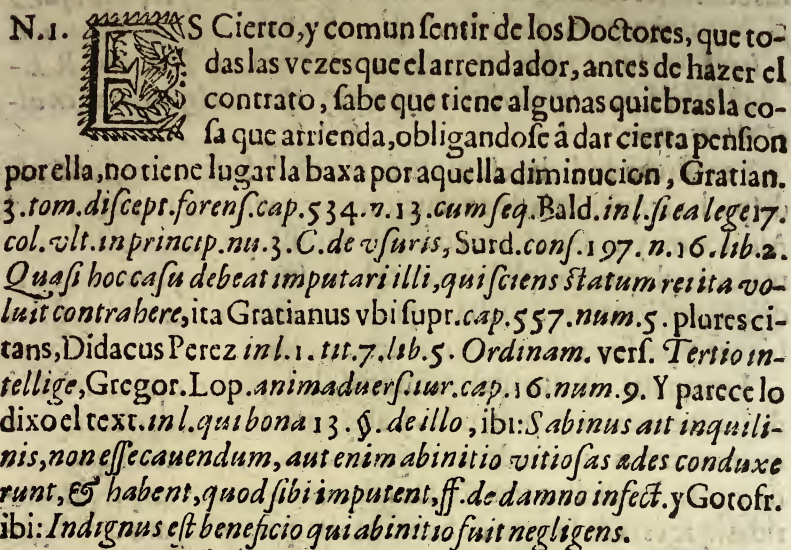 N.1. ES Cierto, y comun sentir de los Doctores, que to-
das las vezes que el arrendador, antes de hazer el
contrato, sabe que tiene algunas quiebras la co-
sa que arrienda, obligandose â dar cierta pension
por ella, no tiene lugar la baxa por aquella diminucion, Gratian.
3.tom.discept.forens.cap.534.n.13.cum seq.Bald.in l.si ea lege 17.
col.vlt.in princip.nu.3.C.de vsuris, Surd.cons.197.n.16.lib.2.
Quasi hoc casu debeat imputari illi, qui sciens statum rei ita vo-
luit contrahere, ita Gratianus vbi supr.cap.557.num.5.plures ci-
tans, Didacus Perez in l.1.tit.7.lib.5.Ordinam. vers. Tertio in-
tellige, Gregor.Lop.animaduers.iur.cap.16.num.9. Y parece lo
dixo el text.in l.qui bona 13.§.de illo, ibi: Sabinus ait inquili-
nis, non esse cauendum, aut enim ab initio vitiosas ædes conduxe
runt, & habent, quod sibi imputent, ff.de damno infect. y Gotofr.
ibi: Indignus est beneficio qui ab initio fuit negligens.